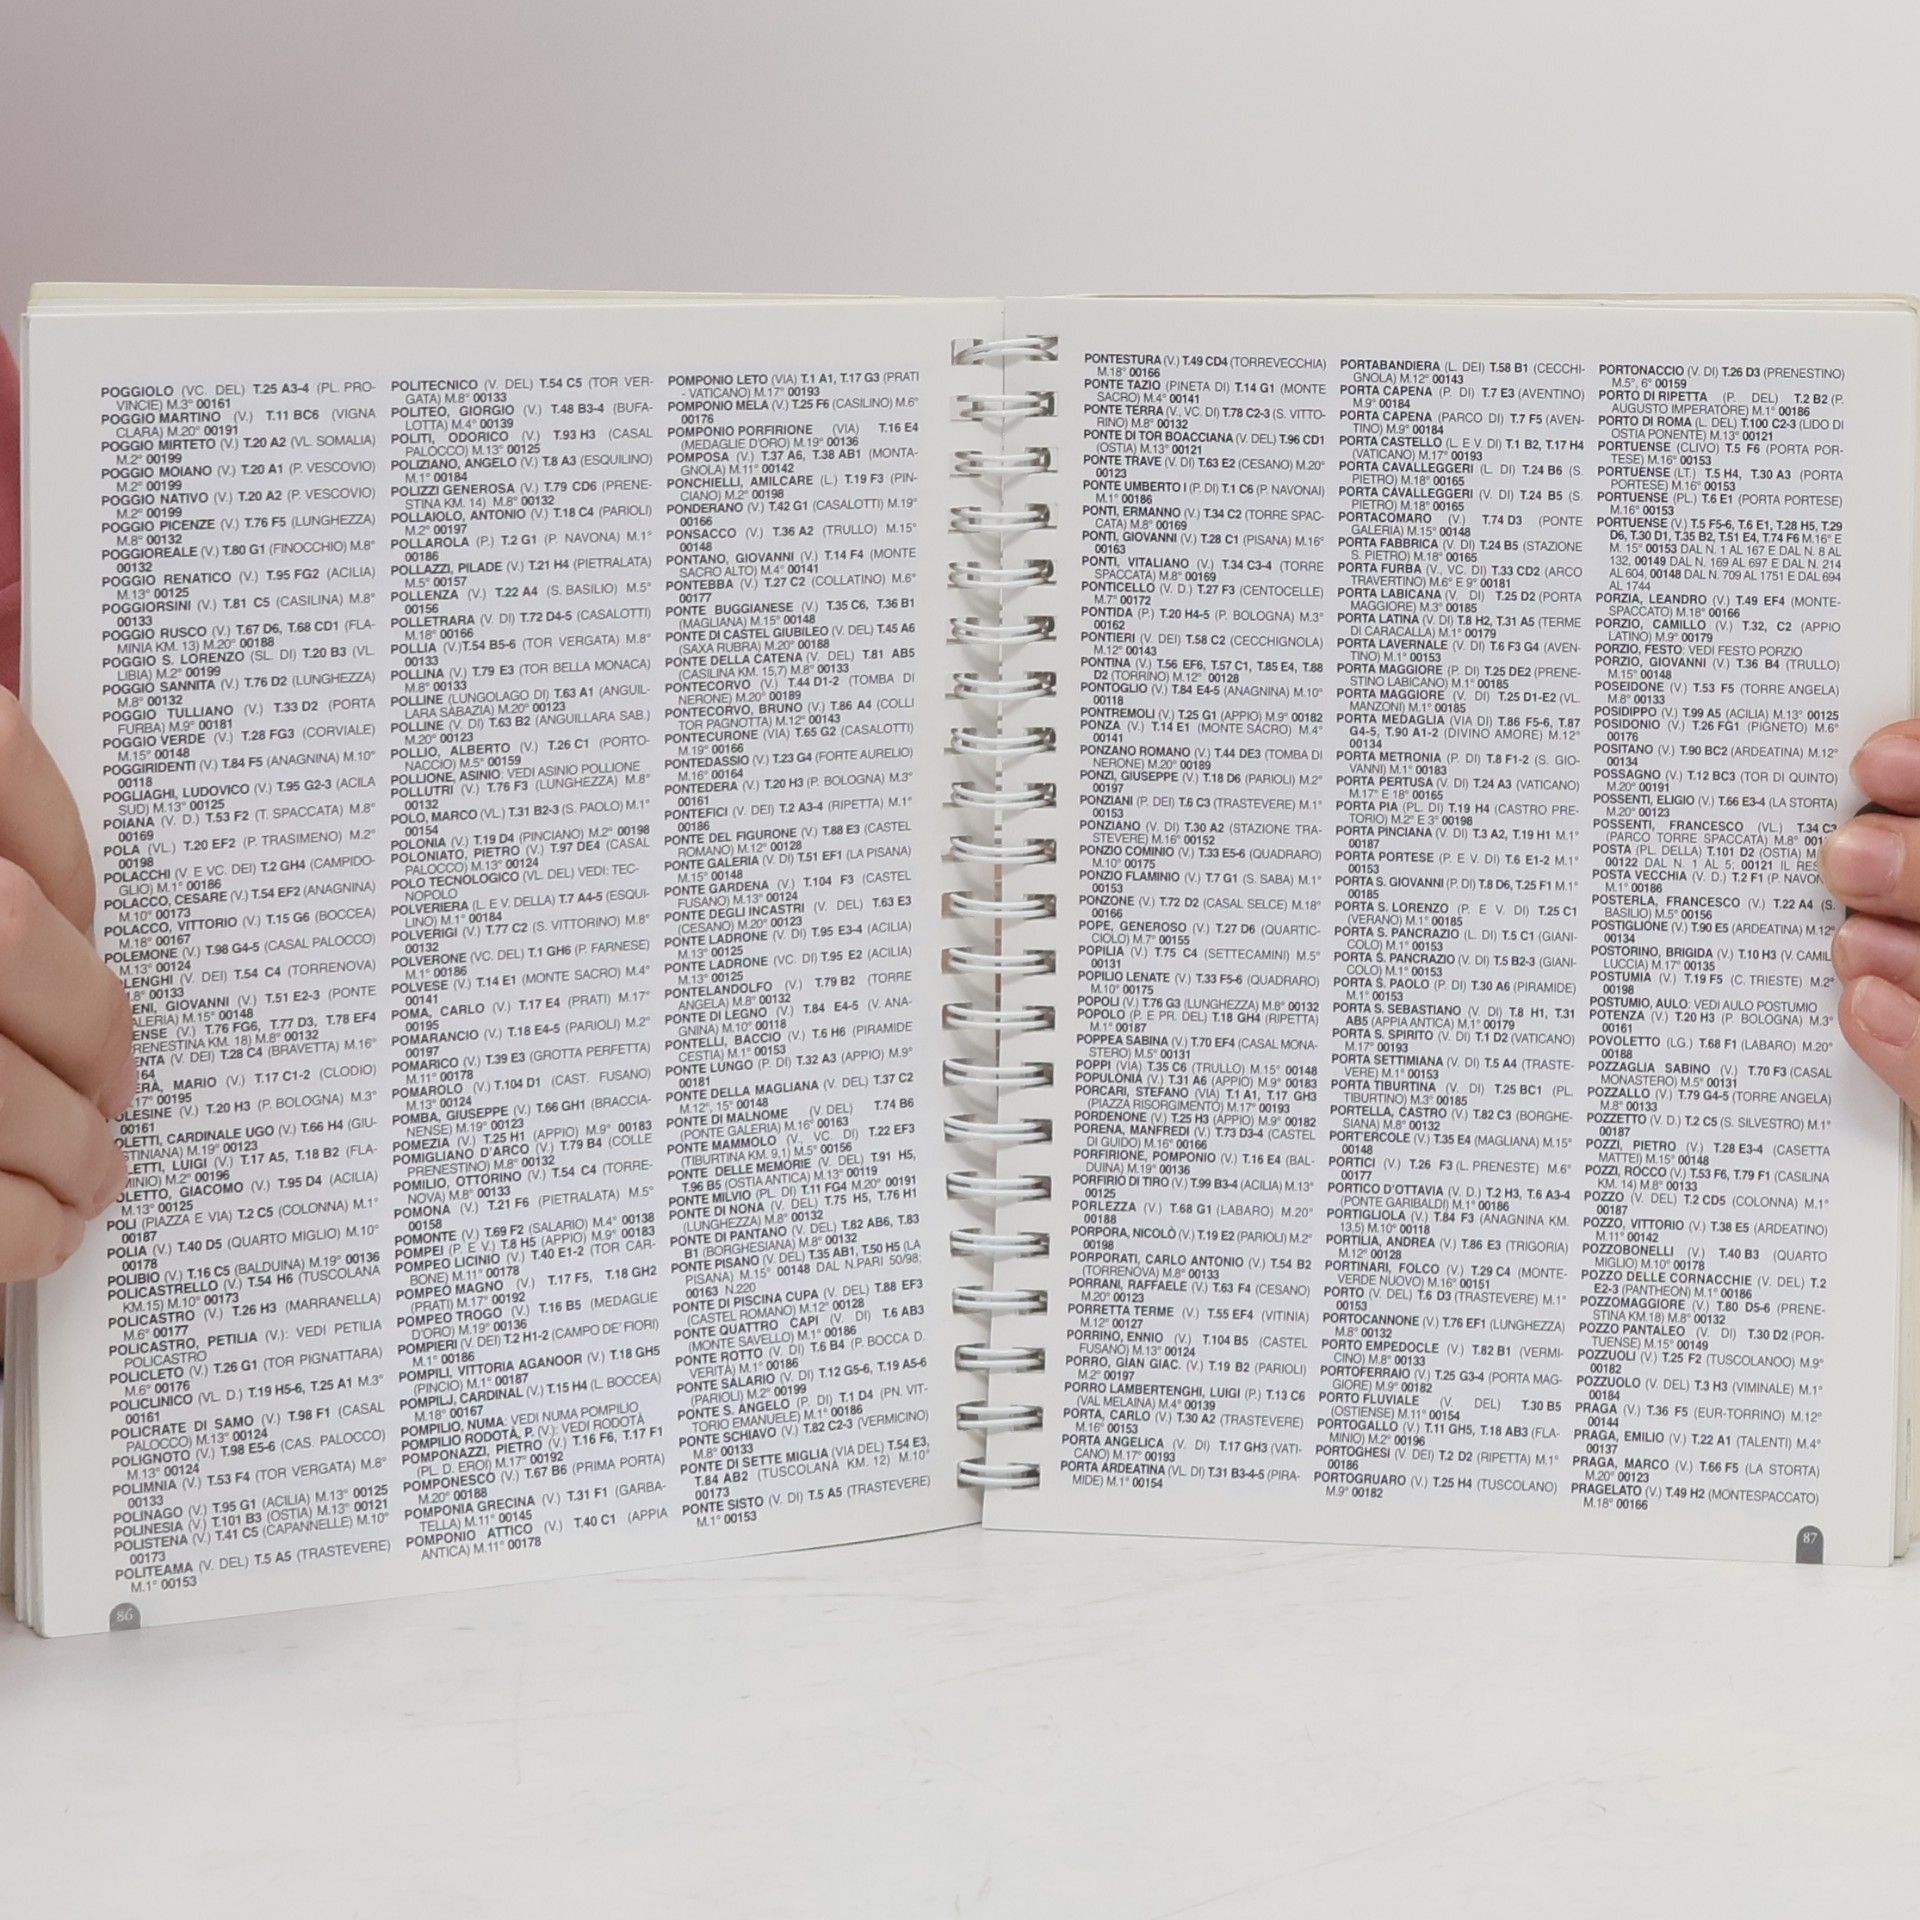 POGGIOLO (VC. DEL) T.25 A3-4 (PL. PRO-
VINCIE) M.3° 00161
POGGIO MARTINO (V.) T.11 BC6 (VIGNA
CLARA) M.20° 00191
POGGIO MIRTETO (V.) T.20 A2 (VL. SOMALIA)
M.2° 00199
POGGIO MOIANO (V.) T.20 A1 (P. VESCOVIO)
M.2° 00199
POGGIO NATIVO (V.) T.20 A2 (P. VESCOVIO)
M.2° 00199
POGGIO PICENZE (V.) T.76 F5 (LUNGHEZZA)
M.8° 00132
POGGIOREALE (V.) T.80 G1 (FINOCCHIO) M.8°
00132
POGGIO RENATICO (V.) T.95 FG2 (ACILIA)
M.13° 00125
POGGIORSINI (V.) T.81 C5 (CASILINA) M.8°
00133
POGGIO RUSCO (V.) T.67 D6, T.68 CD1 (FLA-
MINIA KM. 13) M.20° 00188
POGGIO S. LORENZO (SL. DI) T.20 B3 (VL.
LIBIA) M.2° 00199
POGGIO SANNITA (V.) T.76 D2 (LUNGHEZZA)
M.8° 00132
POGGIO TULLIANO (V.) T.33 D2 (PORTA
FURBA) M.9° 00181
POGGIO VERDE (V.) T.28 FG3 (CORVIALE)
M.15° 00148
POGGIRIDENTI (V.) T.84 F5 (ANAGNINA) M.10°
00118
POGLIAGHI, LUDOVICO (V.) T.95 G2-3 (ACILA
SUD) M.13° 00125
POIANA (V. D.) T.53 F2 (T. SPACCATA) M.8°
00169
POLA (VL.) T.20 EF2 (P. TRASIMENO) M.2°
00198
POLACCHI (V. E VC. DEI) T.2 GH4 (CAMPIDO-
GLIO) M.1° 00186
POLACCO, CESARE (V.) T.54 EF2 (ANAGNINA)
M.10° 00173
POLACCO, VITTORIO (V.) T.15 G6 (BOCCEA)
M.18° 00167
POLEMONE (V.) T.98 G4-5 (CASAL PALOCCO)
M.13° 00124
LENGHI (V. DEI) T.54 C4 (TORRENOVA)
.8° 00133
ENI, GIOVANNI (V.) T.51 E2-3 (PONTE
ALERIA) M.15° 00148
ENSE (V.) T.76 FG6, T.77 D3, T.78 EF4
RENESTINA KM. 18) M.8° 00132
ENTA (V. DEI) T.28 C4 (BRAVETTA) M.16°
164
ERÀ, MARIO (V.) T.17 C1-2 (CLODIO)
.17° 00195
OLESINE (V.) T.20 H3 (P. BOLOGNA) M.3°
00161
OLETTI, CARDINALE UGO (V.) T.66 H4 (GIU-
STINIANA) M.19° 00123
LETTI, LUIGI (V.) T.17 A5, T.18 B2 (FLA-
MINIO) M.2° 00196
OLETTO, GIACOMO (V.) T.95 D4 (ACILIA)
M.13° 00125
POLI (PIAZZA E VIA) T.2 C5 (COLONNA) M.1°
00187
POLIA (V.) T.40 D5 (QUARTO MIGLIO) M.10°
00178
POLIBIO (V.) T.16 C5 (BALDUINA) M.19° 00136
POLICASTRELLO (V.) T.54 H6 (TUSCOLANA
KM.15) M.10° 00173
POLICASTRO (V.) T.26 H3 (MARRANELLA)
M.6° 00177
POLICASTRO, PETILIA (V.): VEDI PETILIA
POLICASTRO
POLICLETO (V.) T.26 G1 (TOR PIGNATTARA)
M.6° 00176
POLICLINICO (VL. D.) T.19 H5-6, T.25 A1 M.3°
00161
POLICRATE DI SAMO (V.) T.98 F1 (CASAL
PALOCCO) M.13° 00124
POLIGNOTO (V.) T.98 E5-6 (CAS. PALOCCO)
M.13° 00124
POLIMNIA (V.) T.53 F4 (TOR VERGATA) M.8°
00133
POLINAGO (V.) T.95 G1 (ACILIA) M.13° 00125
POLINESIA (V.) T.101 B3 (OSTIA) M.13° 00121
POLISTENA (V.) T.41 C5 (CAPANNELLE) M.10°
00173
POLITEAMA (V. DEL) T.5 A5 (TRASTEVERE)
M.1° 00153
POLITECNICO (V. DEL) T.54 C5 (TOR VER-
GATA) M.8° 00133
POLITEO, GIORGIO (V.) T.48 B3-4 (BUFA-
LOTTA) M.4° 00139
POLITI, ODORICO (V.) T.93 H3 (CASAL
PALOCCO) M.13° 00125
POLIZIANO, ANGELO (V.) T.8 A3 (ESQUILINO)
M.1° 00184
POLIZZI GENEROSA (V.) T.79 CD6 (PRENE-
STINA KM. 14) M.8° 00132
POLLAIOLO, ANTONIO (V.) T.18 C4 (PARIOLI)
M.2° 00197
POLLAROLA (P.) T.2 G1 (P. NAVONA) M.1°
00186
POLLAZZI, PILADE (V.) T.21 H4 (PIETRALATA)
M.5° 00157
POLLENZA (V.) T.22 A4 (S. BASILIO) M.5°
00156
POLLETRARA (V. DI) T.72 D4-5 (CASALOTTI)
M.18° 00166
POLLIA (V.) T.54 B5-6 (TOR VERGATA) M.8°
00133
POLLINA (V.) T.79 E3 (TOR BELLA MONACA)
M.8° 00133
POLLINE (LUNGOLAGO DI) T.63 A1 (ANGUIL-
LARA SABAZIA) M.20° 00123
POLLINE (V. DI) T.63 B2 (ANGUILLARA SAB.)
M.20° 00123
POLLIO, ALBERTO (V.) T.26 C1 (PORTO-
NACCIO) M.5° 00159
POLLIONE, ASINIO: VEDI ASINIO POLLIONE
POLLUTRI (V.) T.76 F3 (LUNGHEZZA) M.8°
00132
POLO, MARCO (VL.) T.31 B2-3 (S. PAOLO) M.1°
00154
POLONIA (V.) T.19 D4 (PINCIANO) M.2° 00198
POLONIATO, PIETRO (V.) T.97 DE4 (CASAL
PALOCCO) M.13° 00124
POLO TECNOLOGICO (VL. DEL) VEDI: TEC-
NOPOLO
POLVERIERA (L. E V. DELLA) T.7 A4-5 (ESQUI-
LINO) M.1° 00184
POLVERIGI (V.) T.77 C2 (S. VITTORINO) M.8°
00132
POLVERONE (VC. DEL) T.1 GH6 (P. FARNESE)
M.1° 00186
POLVESE (V.) T.14 E1 (MONTE SACRO) M.4°
00141
POMA, CARLO (V.) T.17 E4 (PRATI) M.17°
00195
POMARANCIO (V.) T.18 E4-5 (PARIOLI) M.2°
00197
POMARICO (V.) T.39 E3 (GROTTA PERFETTA)
M.11° 00178
POMAROLO (V.) T.104 D1 (CAST. FUSANO)
M.13° 00124
POMBA, GIUSEPPE (V.) T.66 GH1 (BRACCIA-
NENSE) M.19° 00123
POMEZIA (V.) T.25 H1 (APPIO) M.9° 00183
POMIGLIANO D'ARCO (V.) T.79 B4 (COLLE
PRENESTINO) M.8° 00132
POMILIO, OTTORINO (V.) T.54 C4 (TORRE-
NOVA) M.8° 00133
POMONA (V.) T.21 F6 (PIETRALATA) M.5°
00158
POMONTE (V.) T.69 F2 (SALARIO) M.4° 00138
POMPEI (P. E V.) T.8 H5 (APPIO) M.9° 00183
POMPEO LICINIO (V.) T.40 E1-2 (TOR CAR-
BONE) M.11° 00178
POMPEO MAGNO (V.) T.17 F5, T.18 GH2
(PRATI) M.17° 00192
POMPEO TROGO (V.) T.16 B5 (MEDAGLIE
D'ORO) M.19° 00136
POMPIERI (V. DEI) T.2 H1-2 (CAMPO DE' FIORI)
M.1° 00186
POMPILI, VITTORIA AGANOOR (V.) T.18 GH5
(PINCIO) M.1° 00187
POMPILJ, CARDINAL (V.) T.15 H4 (L. BOCCEA)
M.18° 00167
POMPILIO, NUMA: VEDI NUMA POMPILIO
POMPILIO RODOTÀ, P. (V.): VEDI RODOTÀ
POMPONAZZI, PIETRO (V.) T.16 F6, T.17 F1
(PL. D. EROI) M.17° 00192
POMPONESCO (V.) T.67 B6 (PRIMA PORTA)
M.20° 00188
POMPONIA GRECINA (V.) T.31 F1 (GARBA-
TELLA) M.11° 00145
POMPONIO ATTICO (V.) T.40 C1 (APPIA
ANTICA) M.11° 00178
POMPONIO LETO (VIA) T.1 A1, T.17 G3 (PRATI
- VATICANO) M.17° 00193
POMPONIO MELA (V.) T.25 F6 (CASILINO) M.6°
00176
POMPONIO PORFIRIONE (VIA) T.16 E4
(MEDAGLIE D'ORO) M.19° 00136
POMPOSA (V.) T.37 A6, T.38 AB1 (MONTA-
GNOLA) M.11° 00142
PONCHIELLI, AMILCARE (L.) T.19 F3 (PIN-
CIANO) M.2° 00198
PONDERANO (V.) T.42 G1 (CASALOTTI) M.19°
00166
PONSACCO (V.) T.36 A2 (TRULLO) M.15°
00148
PONTANO, GIOVANNI (V.) T.14 F4 (MONTE
SACRO ALTO) M.4° 00141
PONTEBBA (V.) T.27 C2 (COLLATINO) M.6°
00177
PONTE BUGGIANESE (V.) T.35 C6, T.36 B1
(MAGLIANA) M.15° 00148
PONTE DI CASTEL GIUBILEO (V. DEL) T.45 A6
(SAXA RUBRA) M.20° 00188
PONTE DELLA CATENA (V. DEL) T.81 AB5
(CASILINA KM. 15,7) M.8° 00133
PONTECORVO (V.) T.44 D1-2 (TOMBA DI
NERONE) M.20° 00189
PONTECORVO, BRUNO (V.) T.86 A4 (COLLI
TOR PAGNOTTA) M.12° 00143
PONTECURONE (VIA) T.65 G2 (CASALOTTI)
M.19° 00166
PONTEDASSIO (V.) T.23 G4 (FORTE AURELIO)
M.16° 00164
PONTEDERA (V.) T.20 H3 (P. BOLOGNA) M.3°
00161
PONTEFICI (V. DEI) T.2 A3-4 (RIPETTA) M.1°
00186
PONTE DEL FIGURONE (V.) T.88 E3 (CASTEL
ROMANO) M.12° 00128
PONTE GALERIA (V. DI) T.51 EF1 (LA PISANA)
M.15° 00148
PONTE GARDENA (V.) T.104 F3 (CASTEL
FUSANO) M.13° 00124
PONTE DEGLI INCASTRI (V. DEL) T.63 E3
(CESANO) M.20° 00123
PONTE LADRONE (V. DI) T.95 E3-4 (ACILIA)
M.13° 00125
PONTE LADRONE (VC. DI) T.95 E2 (ACILIA)
M.13° 00125
PONTELANDOLFO (V.) T.79 B2 (TORRE
ANGELA) M.8° 00132
PONTE DI LEGNO (V.) T.84 E4-5 (V. ANA-
GNINA) M.10° 00118
PONTELLI, BACCIO (V.) T.6 H6 (PIRAMIDE
CESTIA) M.1° 00153
PONTE LUNGO (P. DI) T.32 A3 (APPIO) M.9°
00181
PONTE DELLA MAGLIANA (V. DEL) T.37 C2
M.12°, 15° 00148
PONTE DI MALNOME (V. DEL) T.74 B6
(PONTE GALERIA) M.16° 00163
PONTE MAMMOLO (V., VC. DI) T.22 EF3
(TIBURTINA KM. 9,1) M.5° 00156
PONTE DELLE MEMORIE (V. DEL) T.91 H5,
T.96 B5 (OSTIA ANTICA) M.13° 00119
PONTE MILVIO (PL. DI) T.11 FG4 M.20° 00191
PONTE DI NONA (V. DEL) T.75 H5, T.76 H1
(LUNGHEZZA) M.8° 00132
PONTE DI PANTANO (V. DEL) T.82 AB6, T.83
B1 (BORGHESIANA) M.8° 00132
PONTE PISANO (V. DEL) T.35 AB1, T.50 H5 (LA
PISANA) M.15° 00148 DAL N.PARI 50/98;
00163 N.220
PONTE DI PISCINA CUPA (V. DEL) T.88 EF3
(CASTEL ROMANO) M.12° 00128
PONTE QUATTRO CAPI (V. DI) T.6 AB3
(MONTE SAVELLO) M.1° 00186
PONTE ROTTO (V. DI) T.6 B4 (P. BOCCA D.
VERITÀ) M.1° 00186
PONTE SALARIO (V. DI) T.12 G5-6, T.19 A5-6
(PARIOLI) M.2° 00199
PONTE S. ANGELO (P. DI) T.1 D4 (PN. VIT-
TORIO EMANUELE) M.1° 00186
PONTE SCHIAVO (V.) T.82 C2-3 (VERMICINO)
M.8° 00133
PONTE DI SETTE MIGLIA (VIA DEL) T.54 E3,
T.84 AB2 (TUSCOLANA KM. 12) M.10°
00173
PONTE SISTO (V. DI) T.5 A5 (TRASTEVERE)
M.1° 00153
86
PONTESTURA (V.) T.49 CD4 (TORREVECCHIA)
M.18° 00166
PONTE TAZIO (PINETA DI) T.14 G1 (MONTE
SACRO) M.4° 00141
PONTE TERRA (V., VC. DI) T.78 C2-3 (S. VITTO-
RINO) M.8° 00132
PONTE DI TOR BOACCIANA (V. DEL) T.96 CD1
(OSTIA) M.13° 00121
PONTE TRAVE (V. DI) T.63 E2 (CESANO) M.20°
00123
PONTE UMBERTO I (P. DI) T.1 C6 (P. NAVONAI)
M.1° 00186
PONTI, ERMANNO (V.) T.34 C2 (TORRE SPAC-
CATA) M.8° 00169
PONTI, GIOVANNI (V.) T.28 C1 (PISANA) M.16°
00163
PONTI, VITALIANO (V.) T.34 C3-4 (TORRE
SPACCATA) M.8° 00169
PONTICELLO (V. D.) T.27 F3 (CENTOCELLE)
M.7° 00172
PONTIDA (P.) T.20 H4-5 (P. BOLOGNA) M.3°
00162
PONTIERI (V. DEI) T.58 C2 (CECCHIGNOLA)
M.12° 00143
PONTINA (V.) T.56 EF6, T.57 C1, T.85 E4, T.88
D2 (TORRINO) M.12° 00128
PONTOGLIO (V.) T.84 E4-5 (ANAGNINA) M.10°
00118
PONTREMOLI (V.) T.25 G1 (APPIO) M.9° 00182
PONZA (V.) T.14 E1 (MONTE SACRO) M.4°
00141
PONZANO ROMANO (V.) T.44 DE3 (TOMBA DI
NERONE) M.20° 00189
PONZI, GIUSEPPE (V.) T.18 D6 (PARIOLI) M.2°
00197
PONZIANI (P. DEI) T.6 C3 (TRASTEVERE) M.1°
00153
PONZIANO (V. DI) T.30 A2 (STAZIONE TRA-
STEVERE) M.16° 00152
PONZIO COMINIO (V.) T.33 E5-6 (QUADRARO)
M.10° 00175
PONZIO FLAMINIO (V.) T.7 G1 (S. SABA) M.1°
00153
PONZONE (V.) T.72 D2 (CASAL SELCE) M.18°
00166
POPE, GENEROSO (V.) T.27 D6 (QUARTIC-
CIOLO) M.7° 00155
POPILIA (V.) T.75 C4 (SETTECAMINI) M.5°
00131
POPILIO LENATE (V.) T.33 F5-6 (QUADRARO)
M.10° 00175
POPOLI (V.) T.76 G3 (LUNGHEZZA) M.8° 00132
POPOLO (P. E PR. DEL) T.18 GH4 (RIPETTA)
M.1° 00187
POPPEA SABINA (V.) T.70 EF4 (CASAL MONA-
STERO) M.5° 00131
POPPI (VIA) T.35 C6 (TRULLO) M.15° 00148
POPULONIA (V.) T.31 A6 (APPIO) M.9° 00183
PORCARI, STEFANO (VIA) T.1 A1, T.17 GH3
(PIAZZA RISORGIMENTO) M.17° 00193
PORDENONE (V.) T.25 H3 (APPIO) M.9° 00182
PORENA, MANFREDI (V.) T.73 D3-4 (CASTEL
DI GUIDO) M.16° 00166
PORFIRIONE, POMPONIO (V.) T.16 E4 (BAL-
DUINA) M.19° 00136
PORFIRIO DI TIRO (V.) T.99 B3-4 (ACILIA) M.13°
00125
PORLEZZA (V.) T.68 G1 (LABARO) M.20°
00188
PORPORA, NICOLÒ (V.) T.19 E2 (PARIOLI) M.2°
00198
PORPORATI, CARLO ANTONIO (V.) T.54 B2
(TORRENOVA) M.8° 00133
PORRANI, RAFFAELE (V.) T.63 F4 (CESANO)
M.20° 00123
PORRETTA TERME (V.) T.55 EF4 (VITINIA)
M.12° 00127
PORRINO, ENNIO (V.) T.104 B5 (CASTEL
FUSANO) M.13° 00124
PORRO, GIAN GIAC. (V.) T.19 B2 (PARIOLI)
M.2° 00197
PORRO LAMBERTENGHI, LUIGI (P.) T.13 C6
(VAL MELAINA) M.4° 00139
PORTA, CARLO (V.) T.30 A2 (TRASTEVERE)
M.16° 00153
PORTA ANGELICA (V. DI) T.17 GH3 (VATI-
CANO) M.17° 00193
PORTA ARDEATINA (VL. DI) T.31 B3-4-5 (PIRA-
MIDE) M.1° 00154
PORTABANDIERA (L. DEI) T.58 B1 (CECCHI-
GNOLA) M.12° 00143
PORTA CAPENA (P. DI) T.7 E3 (AVENTINO)
M.9° 00184
PORTA CAPENA (PARCO DI) T.7 F5 (AVEN-
TINO) M.9° 00184
PORTA CASTELLO (L. E V. DI) T.1 B2, T.17 H4
(VATICANO) M.17° 00193
PORTA CAVALLEGGERI (L. DI) T.24 B6 (S.
PIETRO) M.18° 00165
PORTA CAVALLEGGERI (V. DI) T.24 B5 (S.
PIETRO) M.18° 00165
PORTACOMARO (V.) T.74 D3 (PONTE
GALERIA) M.15° 00148
PORTA FABBRICA (V. DI) T.24 B5 (STAZIONE
S. PIETRO) M.18° 00165
PORTA FURBA (V., VC. DI) T.33 CD2 (ARCO
TRAVERTINO) M.6° E 9° 00181
PORTA LABICANA (V. DI) T.25 D2 (PORTA
MAGGIORE) M.3° 00185
PORTA LATINA (V. DI) T.8 H2, T.31 A5 (TERME
DI CARACALLA) M.1° 00179
PORTA LAVERNALE (V. DI) T.6 F3 G4 (AVEN-
TINO) M.1° 00153
PORTA MAGGIORE (P. DI) T.25 DE2 (PRENE-
STINO LABICANO) M.1° 00185
PORTA MAGGIORE (V. DI) T.25 D1-E2 (VL.
MANZONI) M.1° 00185
PORTA MEDAGLIA (VIA DI) T.86 F5-6, T.87
G4-5, T.90 A1-2 (DIVINO AMORE) M.12°
00134
PORTA METRONIA (P. DI) T.8 F1-2 (S. GIO-
VANNI) M.1° 00183
PORTA PERTUSA (V. DI) T.24 A3 (VATICANO)
M.17° E 18° 00165
PORTA PIA (PL. DI) T.19 H4 (CASTRO PRE-
TORIO) M.2° E 3° 00198
PORTA PINCIANA (V. DI) T.3 A2, T.19 H1 M.1°
00187
PORTA PORTESE (P. E V. DI) T.6 E1-2 M.1°
00153
PORTA S. GIOVANNI (P. DI) T.8 D6, T.25 F1 M.1°
00185
PORTA S. LORENZO (P. E V. DI) T.25 C1
(VERANO) M.1° 00185
PORTA S. PANCRAZIO (L. DI) T.5 C1 (GIANI-
COLO) M.1° 00153
PORTA S. PANCRAZIO (V. DI) T.5 B2-3 (GIANI-
COLO) M.1° 00153
PORTA S. PAOLO (P. DI) T.30 A6 (PIRAMIDE)
M.1° 00153
PORTA S. SEBASTIANO (V. DI) T.8 H1, T.31
AB5 (APPIA ANTICA) M.1° 00179
PORTA S. SPIRITO (V. DI) T.1 D2 (VATICANO)
M.17° 00193
PORTA SETTIMIANA (V. DI) T.5 A4 (TRASTE-
VERE) M.1° 00153
PORTA TIBURTINA (V. DI) T.25 BC1 (PL.
TIBURTINO) M.3° 00185
PORTELLA, CASTRO (V.) T.82 C3 (BORGHE-
SIANA) M.8° 00132
PORT'ERCOLE (V.) T.35 E4 (MAGLIANA) M.15°
00148
PORTICI (V.) T.26 F3 (L. PRENESTE) M.6°
00177
PORTICO D'OTTAVIA (V. D.) T.2 H3, T.6 A3-4
(PONTE GARIBALDI) M.1° 00186
PORTIGLIOLA (V.) T.84 F3 (ANAGNINA KM.
13,5) M.10° 00118
PORTILIA, ANDREA (V.) T.86 E3 (TRIGORIA)
M.12° 00128
PORTINARI, FOLCO (V.) T.29 C4 (MONTE-
VERDE NUOVO) M.16° 00151
PORTO (V. DEL) T.6 D3 (TRASTEVERE) M.1°
00153
PORTOCANNONE (V.) T.76 EF1 (LUNGHEZZA)
M.8° 00132
PORTO EMPEDOCLE (V.) T.82 B1 (VERMI-
CINO) M.8° 00133
PORTOFERRAIO (V.) T.25 G3-4 (PORTA MAG-
GIORE) M.9° 00182
PORTO FLUVIALE (V. DEL) T.30 B5
(OSTIENSE) M.11° 00154
PORTOGALLO (V.) T.11 GH5, T.18 AB3 (FLA-
MINIO) M.2° 00196
PORTOGHESI (V. DEI) T.2 D2 (RIPETTA) M.1°
00186
PORTOGRUARO (V.) T.25 H4 (TUSCOLANO)
M.9° 00182
PORTONACCIO (V. DI) T.26 D3 (PRENESTINO)
M.5°, 6° 00159
PORTO DI RIPETTA (P. DEL) T.2 B2 (P.
AUGUSTO IMPERATORE) M.1° 00186
PORTO DI ROMA (L. DEL) T.100 C2-3 (LIDO DI
OSTIA PONENTE) M.13° 00121
PORTUENSE (CLIVO) T.5 F6 (PORTA POR-
TESE) M.16° 00153
PORTUENSE (LT.) T.5 H4, T.30 A3 (PORTA
PORTESE) M.16° 00153
PORTUENSE (PL.) T.6 E1 (PORTA PORTESE)
M.16° 00153
PORTUENSE (V.) T.5 F5-6, T.6 E1, T.28 H5, T.29
D6, T.30 D1, T.35 B2, T.51 E4, T.74 F6 M.16° E
M. 15° 00153 DAL N. 1 AL 167 E DAL N. 8 AL
132, 00149 DAL N. 169 AL 697 E DAL N. 214
AL 604, 00148 DAL N. 709 AL 1751 E DAL 694
AL 1744
PORZIA, LEANDRO (V.) T.49 EF4 (MONTE-
SPACCATO) M.18° 00166
PORZIO, CAMILLO (V.) T.32, C2 (APPIO
LATINO) M.9° 00179
PORZIO, FESTO: VEDI FESTO PORZIO
PORZIO, GIOVANNI (V.) T.36 B4 (TRULLO)
M.15° 00148
POSEIDONE (V.) T.53 F5 (TORRE ANGELA)
M.8° 00133
POSIDIPPO (V.) T.99 A5 (ACILIA) M.13° 00125
POSIDONIO (V.) T.26 FG1 (PIGNETO) M.6°
00176
POSITANO (V.) T.90 BC2 (ARDEATINA) M.12°
00134
POSSAGNO (V.) T.12 BC3 (TOR DI QUINTO)
M.20° 00191
POSSENTI, ELIGIO (V.) T.66 E3-4 (LA STORTA)
M.20° 00123
POSSENTI, FRANCESCO (VL.) T.34 C3
(PARCO TORRE SPACCATA) M.8°
POSTA (PL. DELLA) T.101 D2 (OSTIA) M.
00122 DAL N. 1 AL 5; 00121 IL RES
POSTA VECCHIA (V. D.) T.2 F1 (P. NAVON
M.1° 00186
POSTERLA, FRANCESCO (V.) T.22 A4 (S.
BASILIO) M.5° 00156
POSTIGLIONE (V.) T.90 E5 (ARDEATINA) M.12°
00134
POSTORINO, BRIGIDA (V.) T.10 H3 (V. CAMIL
LUCCIA) M.17° 00135
POSTUMIA (V.) T.19 F5 (C. TRIESTE) M.2°
00198
POSTUMIO, AULO: VEDI AULO POSTUMIO
POTENZA (V.) T.20 H3 (P. BOLOGNA) M.3°
00161
POVOLETTO (LG.) T.68 F1 (LABARO) M.20°
00188
POZZAGLIA SABINO (V.) T.70 F3 (CASAL
MONASTERO) M.5° 00131
POZZALLO (V.) T.79 G4-5 (TORRE ANGELA)
M.8° 00133
POZZETTO (V. D.) T.2 C5 (S. SILVESTRO) M.1°
00187
POZZI, PIETRO (V.) T.28 E3-4 (CASETTA
MATTEI) M.15° 00148
POZZI, ROCCO (V.) T.53 F6, T.79 F1 (CASILINA
KM. 14) M.8° 00133
POZZO (V. DEL) T.2 CD5 (COLONNA) M.1°
00187
POZZO, VITTORIO (V.) T.38 E5 (ARDEATINO)
M.11° 00142
POZZOBONELLI (V.) T.40 B3 (QUARTO
MIGLIO) M.10° 00178
POZZO DELLE CORNACCHIE (V. DEL) T.2
E2-3 (PANTHEON) M.1° 00186
POZZOMAGGIORE (V.) T.80 D5-6 (PRENE-
STINA KM.18) M.8° 00132
POZZO PANTALEO (V. DI) T.30 D2 (POR-
TUENSE) M.15° 00149
POZZUOLI (V.) T.25 F2 (TUSCOLANOO) M.9°
00182
POZZUOLO (V. DEL) T.3 H3 (VIMINALE) M.1°
00184
PRAGA (V.) T.36 F5 (EUR-TORRINO) M.12°
00144
PRAGA, EMILIO (V.) T.22 A1 (TALENTI) M.4°
00137
PRAGA, MARCO (V.) T.66 F5 (LA STORTA)
M.20° 00123
PRAGELATO (V.) T.49 H2 (MONTESPACCATO)
M.18° 00166
87